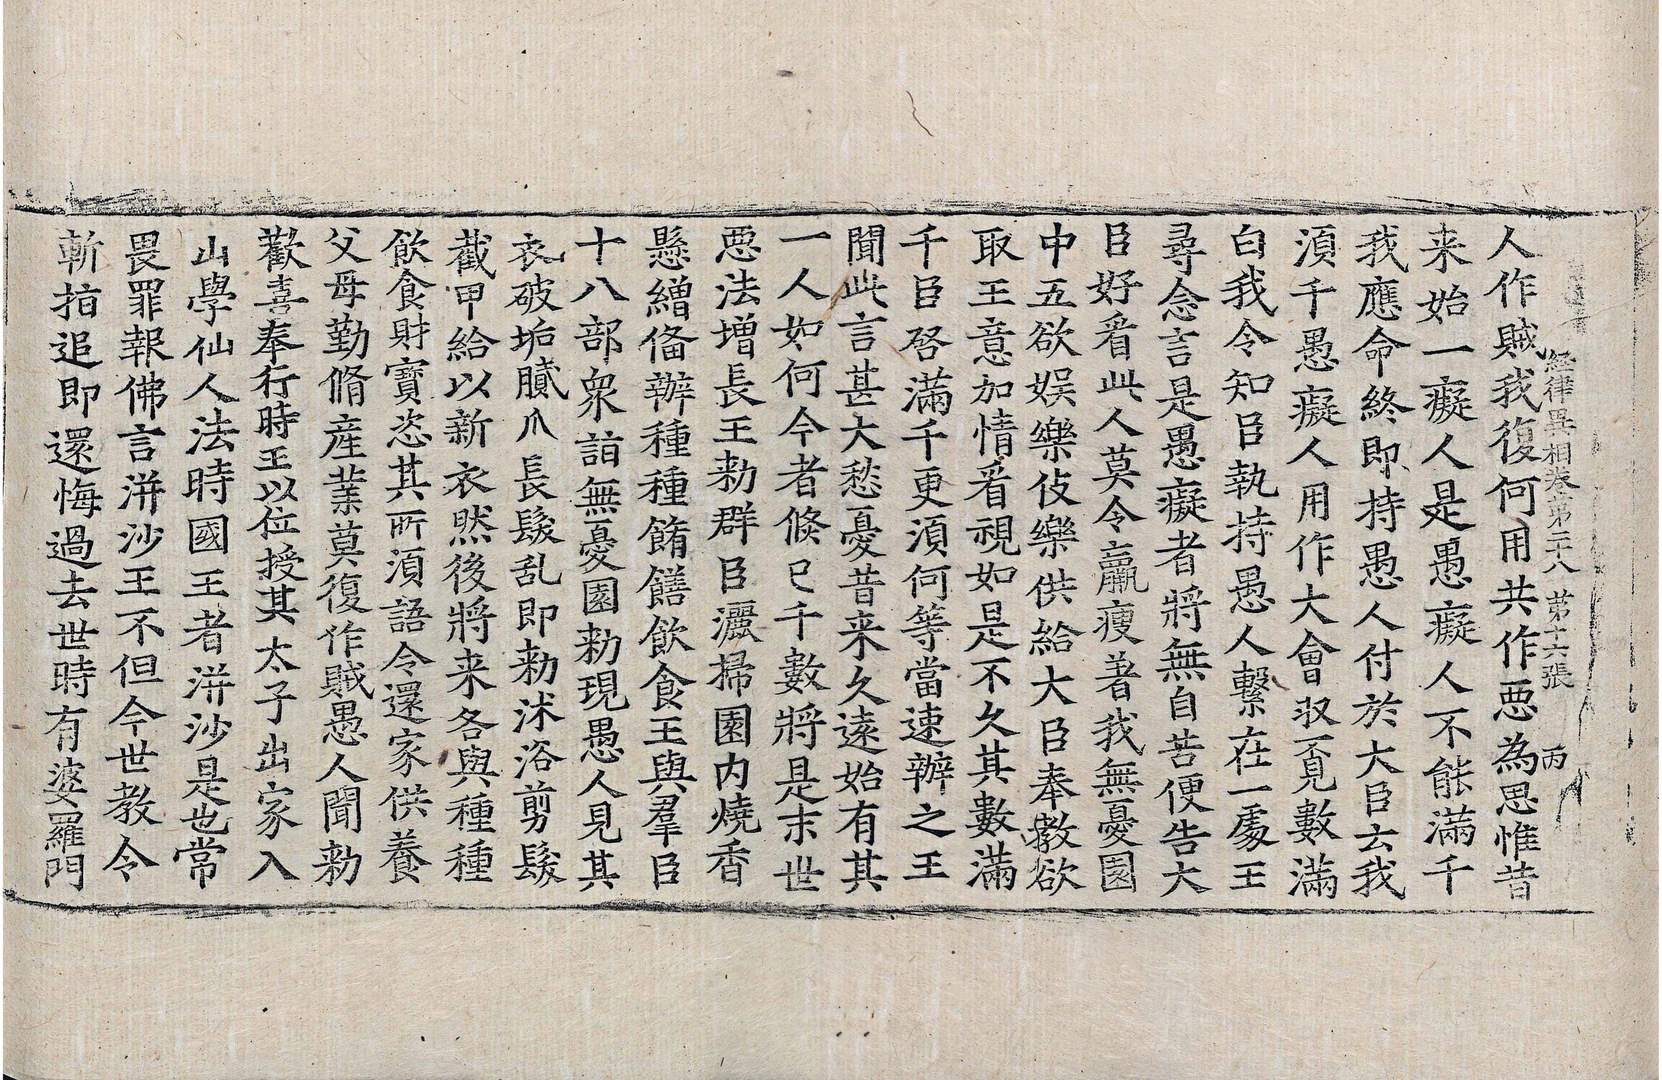 経律異相卷第二十八 第十六張 丙
人作賊我復何用共作惡為思惟昔
来始一癡人是愚癡人不能滿千
我應命終即持愚人付於大臣去我
湏千愚癡人用作大會収覔數滿
白我令知臣執持愚人繫在一處王
尋念言是愚癡者將無自苦便告大
臣好㸔此人莫令羸瘦著我無憂園
中五欲娛樂伎樂供給大臣奉教欲
取王意加情㸔視如是不久其數滿
千臣啓滿千更湏何等當速辦之王
聞此言甚大愁憂昔来久遠始有其
一人如何今者倏已千數將是末世
惡法增長王勑群臣灑掃園内燒香
懸繒俻辦種種餚饍飲食王與羣臣
十八部衆詣無憂園勑現愚人見其
衣破垢膩爪長髮乱即勑沐浴剪髮
截甲給以新衣然後將来各與種種
飲食財寶恣其所湏語令還家供養
父母勤脩産業莫復作賊愚人聞勑
歡喜奉行時王以位授其太子出家入
山學仙人法時國王者洴沙是也常
畏罪報佛言洴沙王不但今世教令
斬指追即還悔過去世時有婆羅門